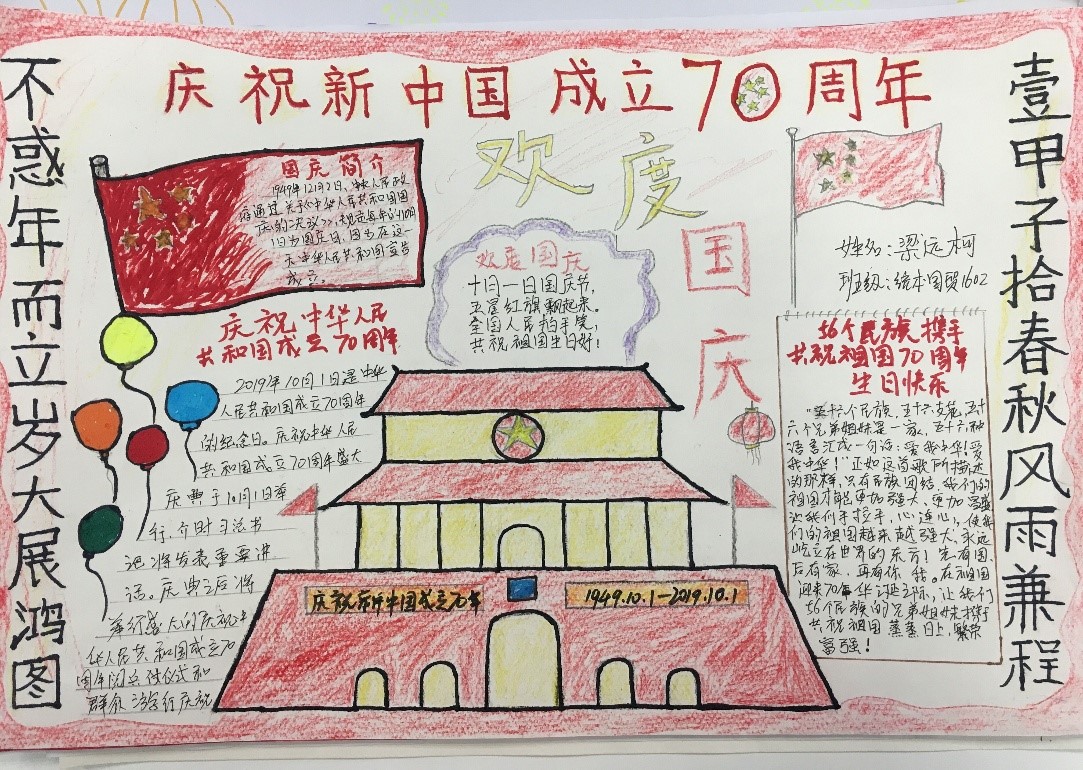 庆祝新中国成立70周年
不惑年而立岁大展鸿图
壹甲子拾春秋风雨兼程
欢度
国
庆
国庆简介
1949年12月2日，中央人民政
府通过《关于中华人民共和国国
庆的决议》，规定每年的10月
1日为国庆日，因为在这一
天中华人民共和国宣告
成立。
欢度国庆
十月一日国庆节，
五星红旗飘起来。
全国人民拍手笑，
共祝祖国生日好！
姓名：梁远柯
班级：统本国贸1602
庆祝中华人民
共和国成立70周年
2019年10月1日是中华
人民共和国成立70周年
的纪念日。庆祝中华人民
共和国成立70周年盛大
庆典于10月1日举
行，介时习总书
记将发表重要讲
话。庆典之后将
举行盛大的庆祝中
华人民共和国成立70
周年阅兵仪式和
群众游行庆祝
56个民族携手
共祝祖国70周年
生日快乐
六个兄弟姐妹是一家，五十六种
语言汇成一句话：爱我中华！爱
我中华！"正如这首歌所描述
的那样，只有民族团结，我们的
祖国才能更加强大，更加富强
让我们手拉手，心连心，使我
们的祖国越来越强大，永远
屹立在世界的东方！先有国，
后有家，再有你我。在祖国
迎来70年华诞之际，让我们
56个民族的兄弟姐妹携手
共祝祖国蒸蒸日上，繁荣
富强！
庆祝新中国成立70年
1949.10.1-2019.10.1